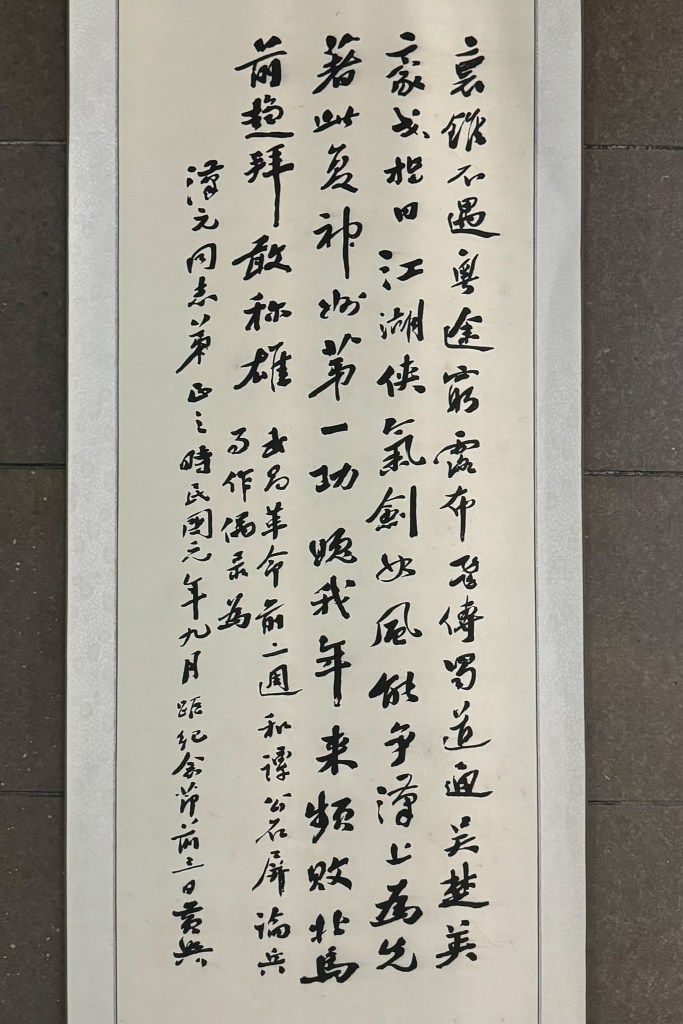 錐不遇粵途窮露布飛傳蜀道通吴楚英
豪戈指日江湖俠氣劍如風能争漢上為先
著此复神州第一功愧我年来頻敗北馬
前趨拜敢称雄
武昌革命前二週和譚公石屏論兵
作偶录為
漢元同志弟正之時民國元年九月距紀念節前三日黄興